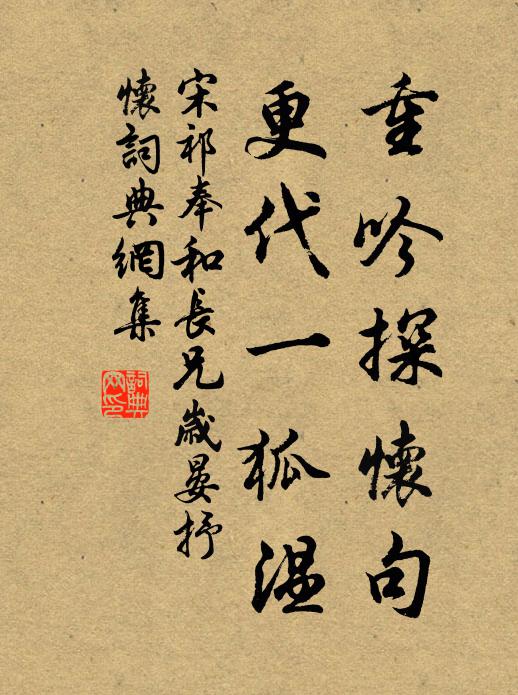 重吟探懷句
更代一狐温
宋祁奉和長兄歲晏抒
懷詞典網集
詞典
网印